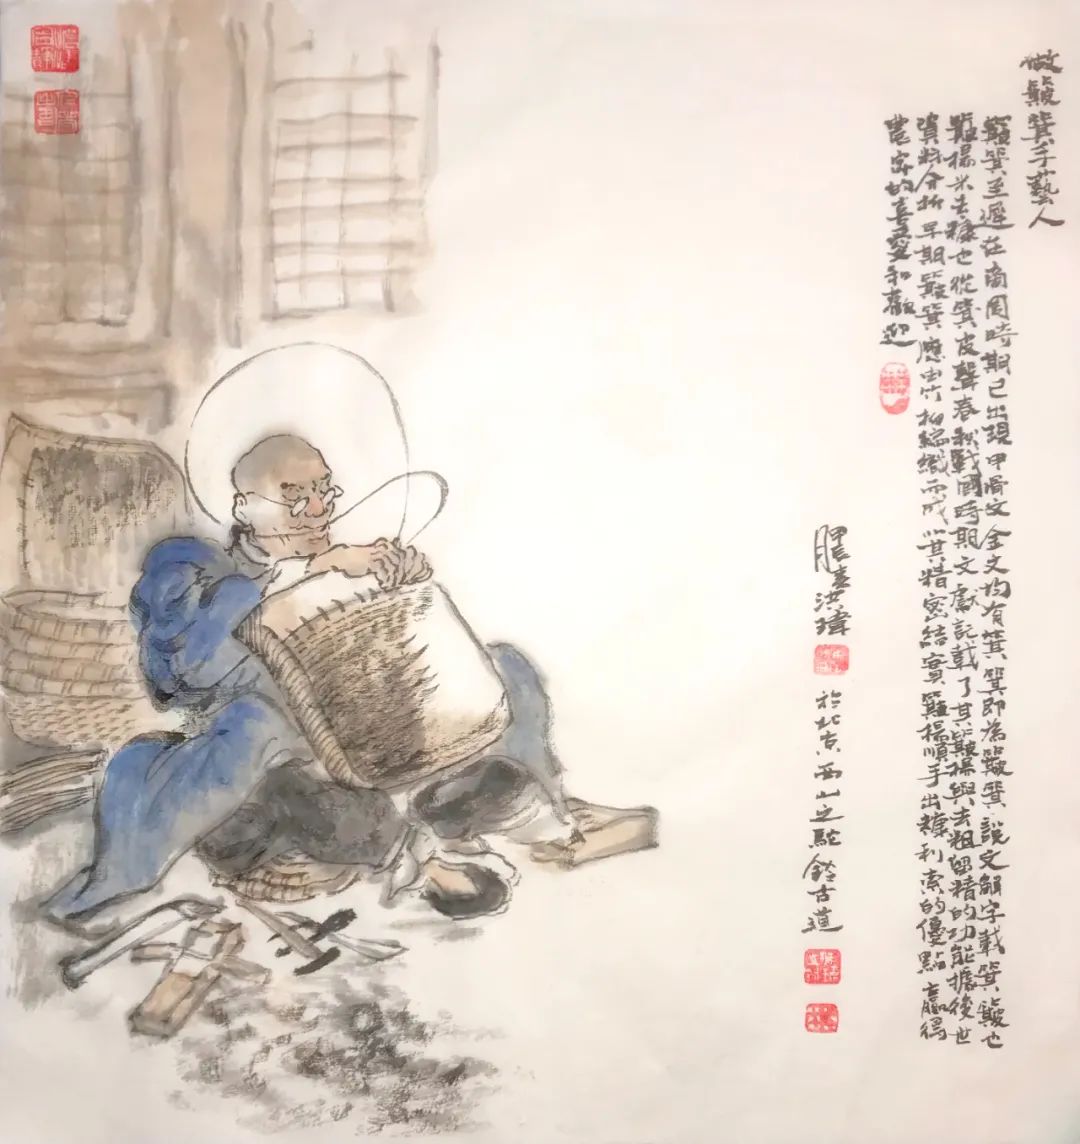 做簸箕手藝人
簸箕至遲在商周時期已出現甲骨文金文均有箕箕即為簸箕說文解字載箕簸也
簸揚米去糠也從箕皮聲春秋戰國時期文獻記載了其簸揚與去粗留精的功能據後世
資料分析早期簸箕應由竹柳編織而成以其精密結實簸揚順手出糠利索的優點贏得
農家的喜愛和歡迎
洪瑋
於北京西山之駝鈴古道